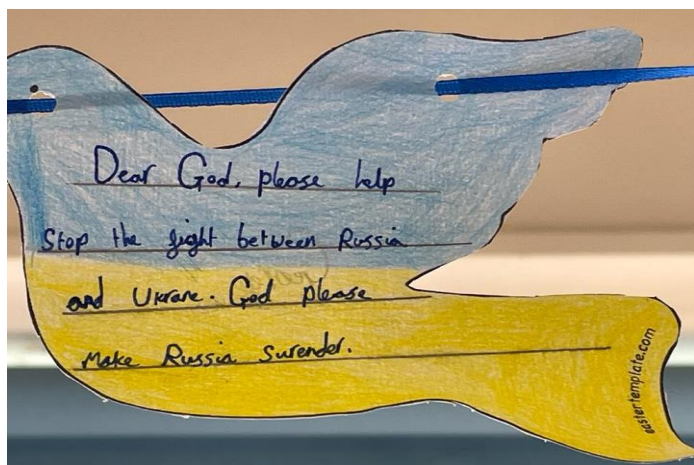 Dear God, please help
Stop the fight between Russia
and Ukrane. God please
Make Russia Surender.
eastertemplate.com